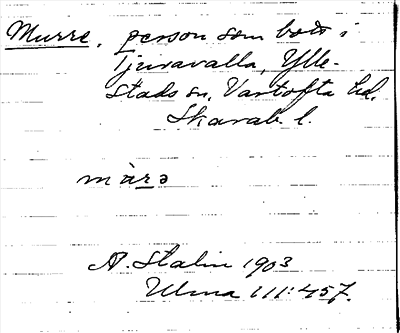 Murre, person som bott i
Tjuvavalla, Ylle-
stads sn, Vartofta hd.
Skarab. l.
màrə
A. Stalin 1903
Ulma 111:457.